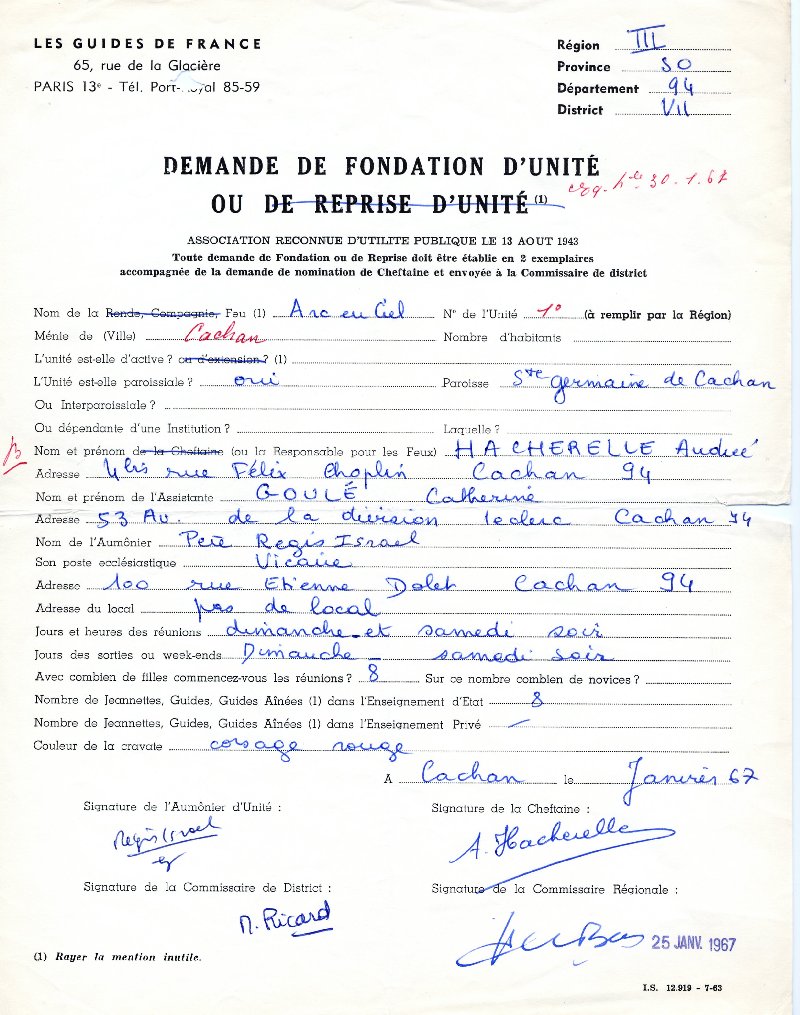 LES GUIDES DE FRANCE
65, rue de la Glacière
PARIS 13e - Tél. Port-Royal 85-59
Région III
Province SO
Département 94
District VII
DEMANDE DE FONDATION D'UNITÉ
OU DE REPRISE D'UNITÉ (1)
30.1.67
ASSOCIATION RECONNUE D'UTILITE PUBLIQUE LE 13 AOUT 1943
Toute demande de Fondation ou de Reprise doit être établie en 2 exemplaires
accompagnée de la demande de nomination de Cheftaine et envoyée à la Commissaire de district
Nom de la Ronde, Compagnie, Feu (1) Arc en Ciel N° de l'Unité 1° (à remplir par la Région)
Ménie de (Ville) Cachan Nombre d'habitants
L'unité est-elle d'active ? ou d'extension ? (1)
L'Unité est-elle paroissiale ? oui Paroisse Ste germaine de Cachan
Ou Interparoissiale ?
Ou dépendante d'une Institution ? Laquelle ?
Nom et prénom de la Cheftaine (ou la Responsable pour les Feux) HACHERELLE Andrée
Adresse 4bis rue Félix Choplin Cachan 94
Nom et prénom de l'Assistante GOULÉ Catherine
Adresse 53 Av. de la division leclerc Cachan 94
Nom de l'Aumônier Père Regis Israel
Son poste ecclésiastique Vicaire
Adresse 100 rue Etienne Dolet Cachan 94
Adresse du local pas de local
Jours et heures des réunions dimanche et samedi soir
Jours des sorties ou week-ends Dimanche - samedi soir
Avec combien de filles commencez-vous les réunions ? 8 Sur ce nombre combien de novices ?
Nombre de Jeannettes, Guides, Guides Aînées (1) dans l'Enseignement d'Etat 8
Nombre de Jeannettes, Guides, Guides Aînées (1) dans l'Enseignement Privé -
Couleur de la cravate corsage rouge
A Cachan le Janvier 67
Signature de l'Aumônier d'Unité :
Regis Israel
Signature de la Cheftaine :
A. Hacherelle
Signature de la Commissaire de District :
M. Ricard
Signature de la Commissaire Régionale :
25 JANV. 1967
(1) Rayer la mention inutile.
I.S. 12.919 - 7-63